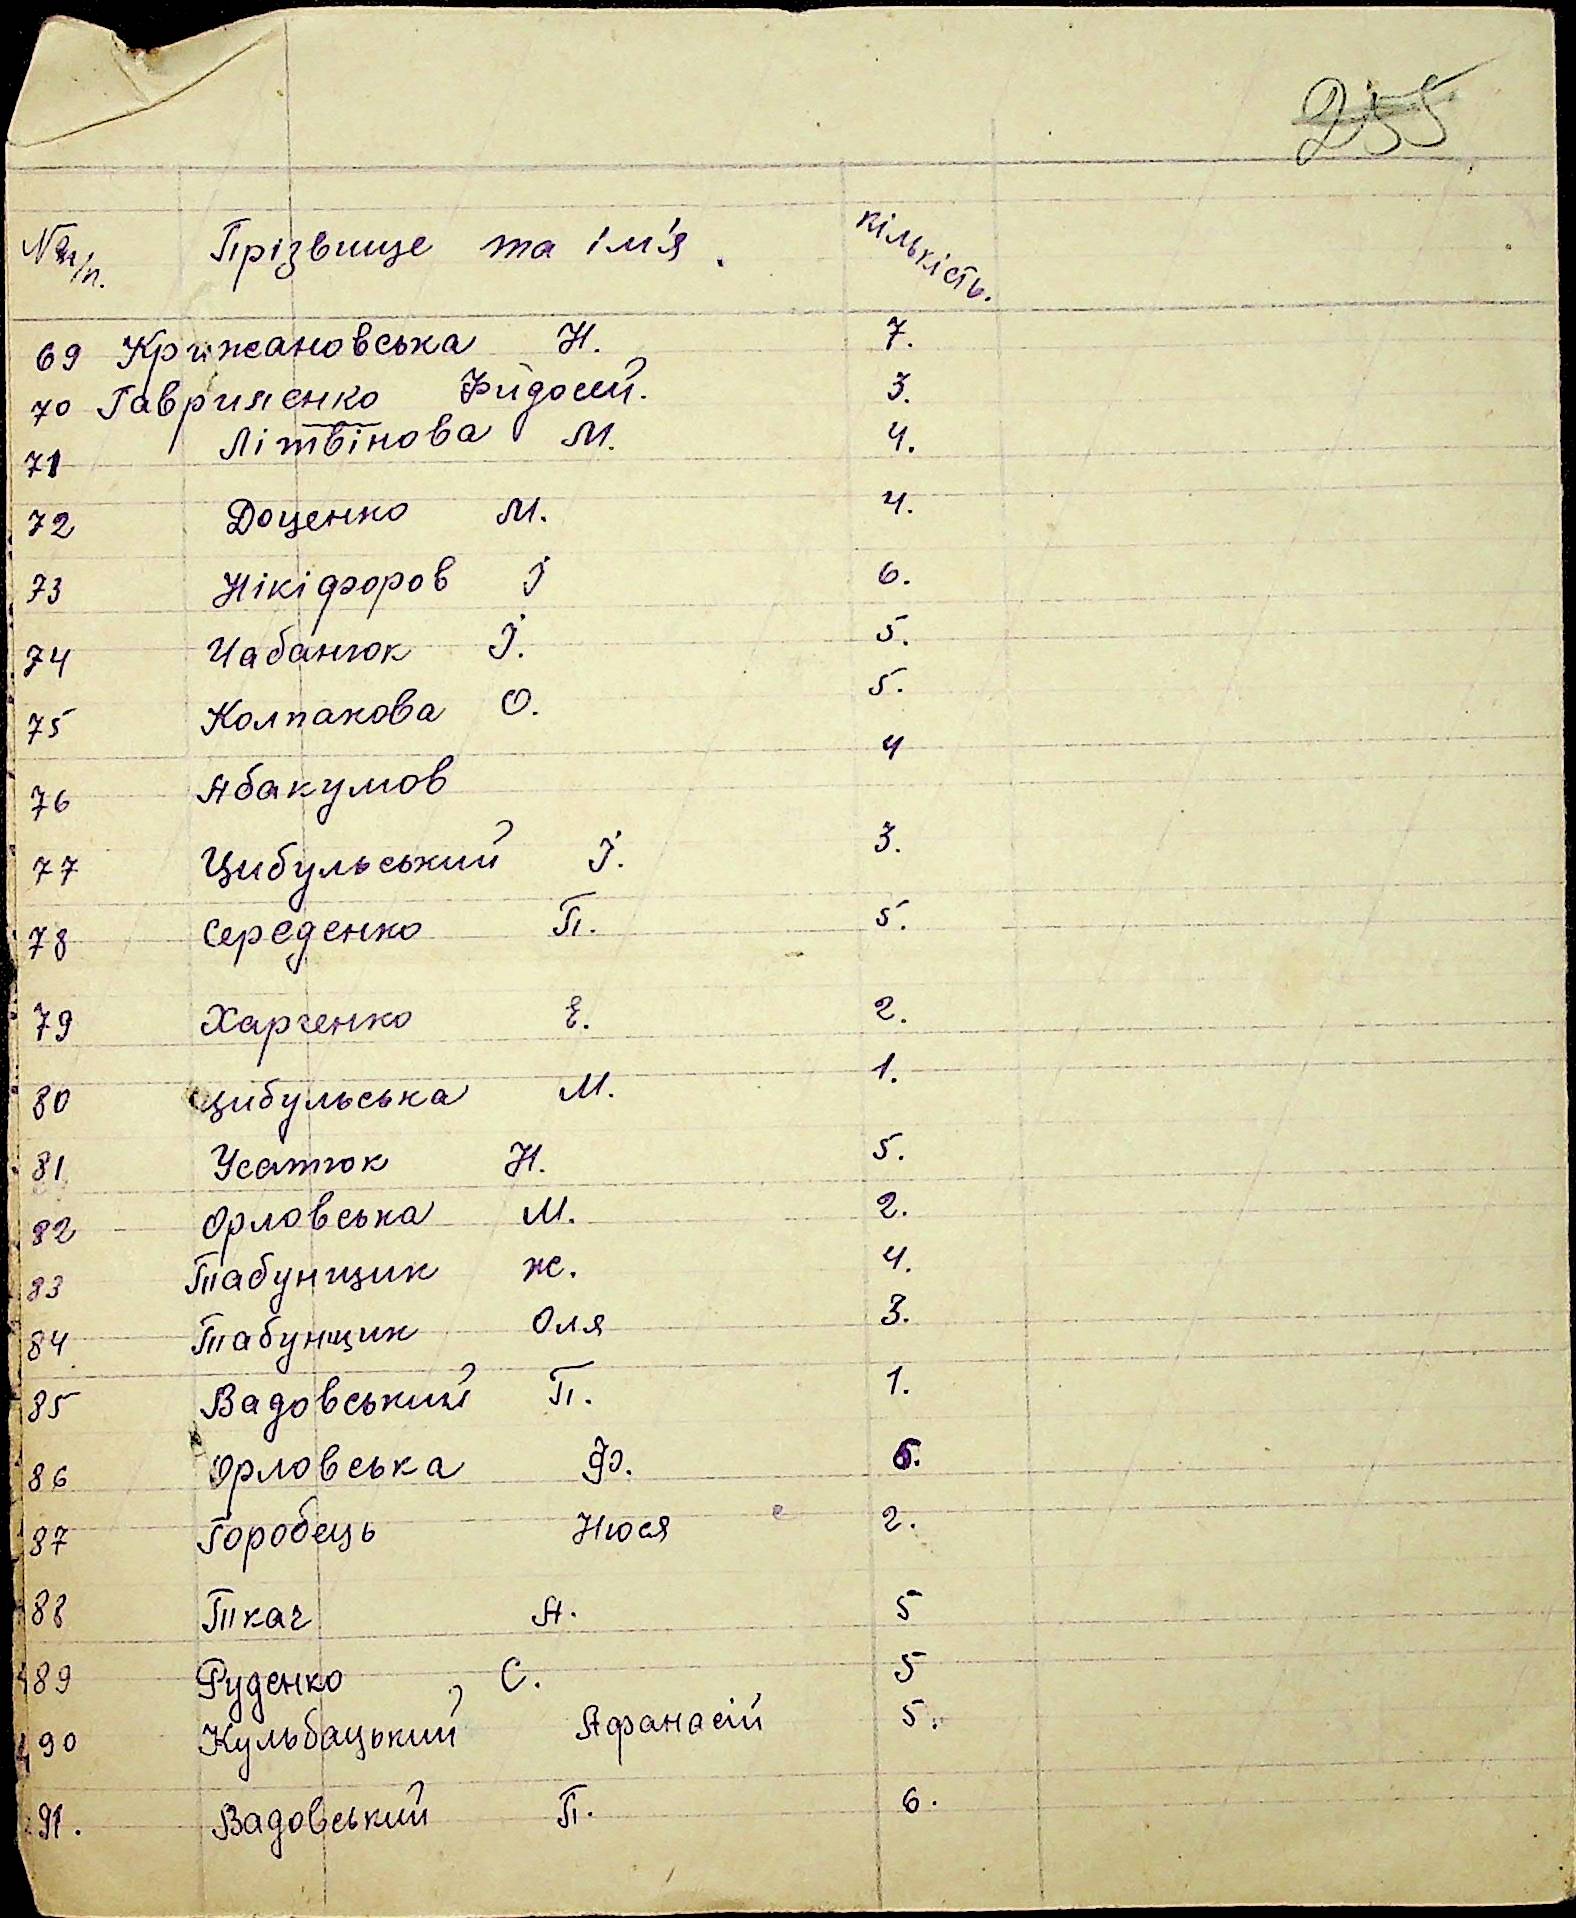 255
№ п/п. Прізвище та ім'я. кількість.
69 Крижановська Н. 7.
70 Гавриленко Фидосий. 3.
71 Літвінова М. 4.
72 Доценко М. 4.
73 Нікіфоров І 6.
74 Чабанюк І. 5.
75 Колпакова О. 5.
76 Абакумов 4
77 Цибульський І. 3.
78 Середенко П. 5.
79 Харченко Е. 2.
80 Цибульська М. 1.
81 Усатюк Н. 5.
82 Орловська М. 2.
83 Табунщик Ж. 4.
84 Табунщик Оля 3.
85 Вадовський П. 1.
86 Орловська Ф. 6.
87 Горобець Нюся 2.
88 Ткач А. 5
89 Руденко С. 5
90 Кульбацький Афанасій 5.
91. Вадовський П. 6.